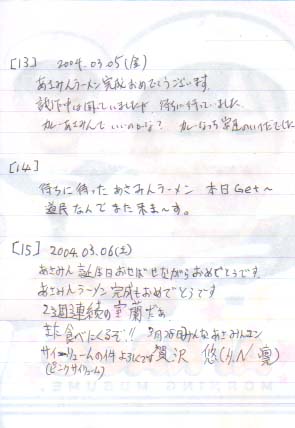 [13] 2004.03.05(金)
あさみんラーメン完成おめでとうございます。
試作中は伺っていましたが、待ちに待っていました。
カレーあさみんで いいのかな? カレーなっち
[14]
待ちに待った あさみんラーメン 本日Get〜
道民なんでまた来ま〜す。
[15] 2004.03.06(土)
あさみん 誕生日おせばせながらおめでとうです。
あさみんラーメン完成もおめでとうです
2週連続の室蘭だぁ
また食べにくるぞ!! みんなあさみんヨン
サイリュームの件 よろしくです 悠
(ピンクサイリューム)
MORNING MUSUME.